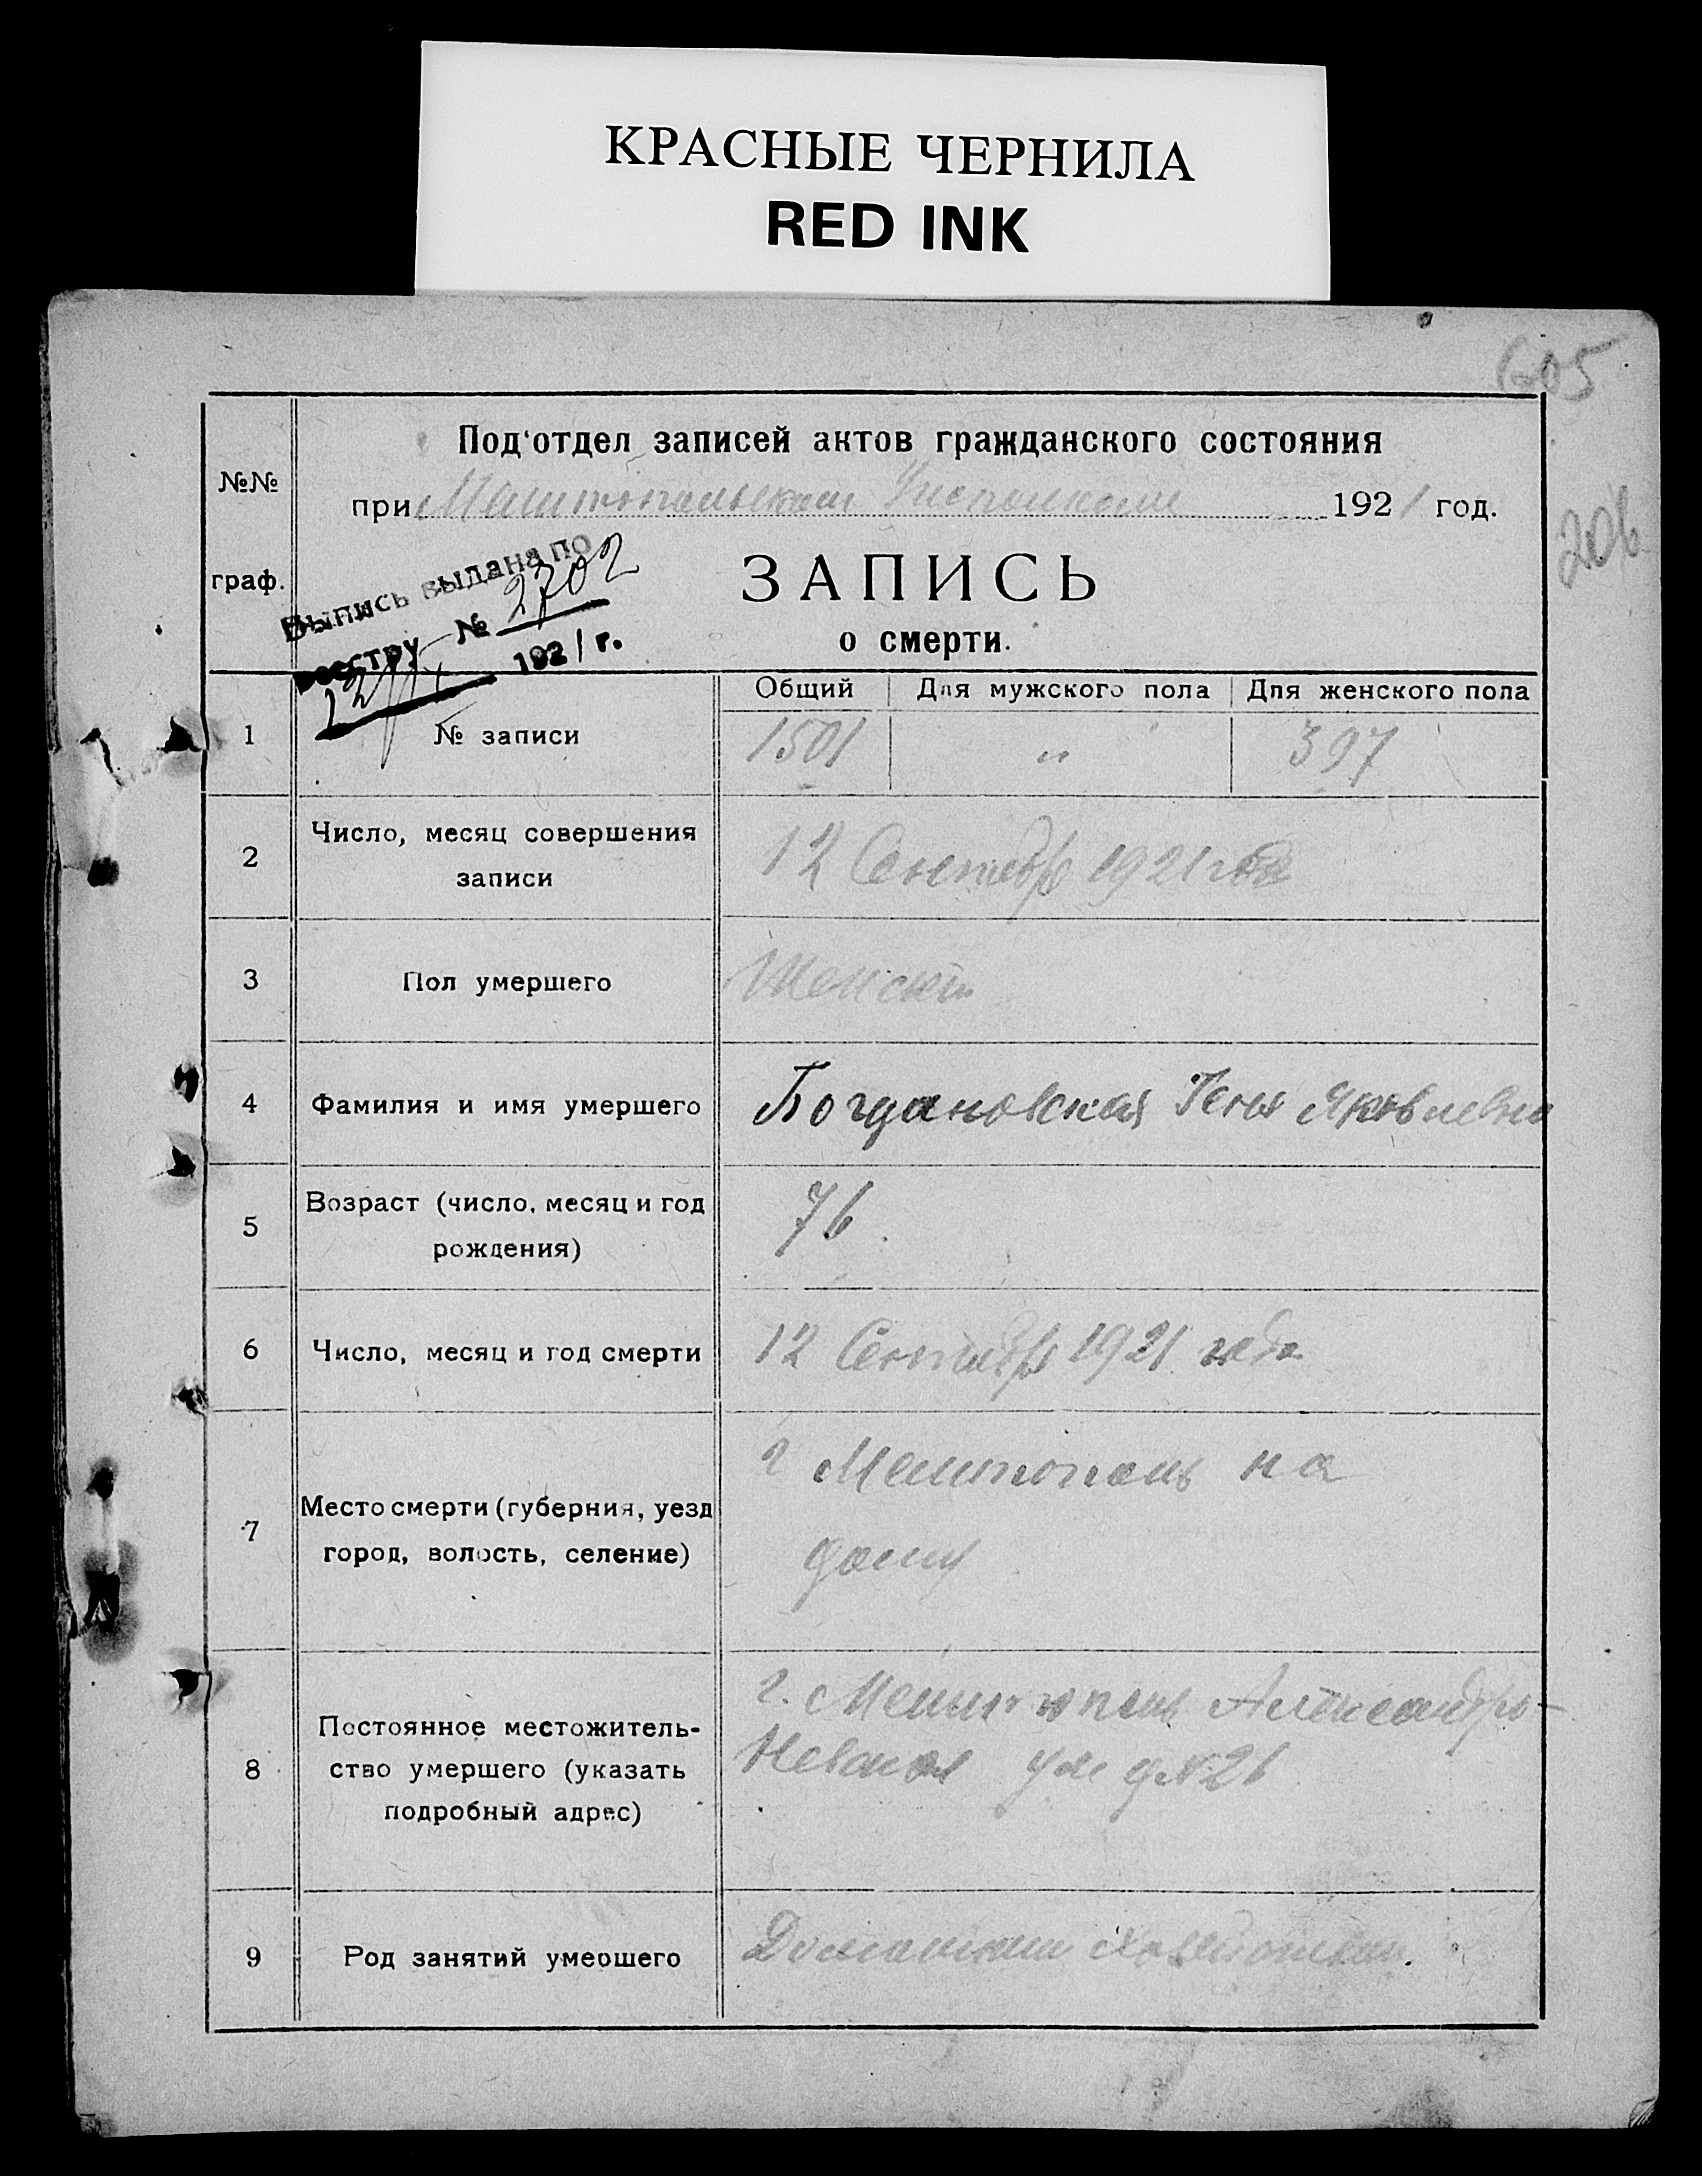 КРАСНЫЕ ЧЕРНИЛА
RED INK
605
206
№№
граф.
Под'отдел записей актов гражданского состояния
при Мелитопольском Исполкоме 1921 год.
Выпись выдана по
реестру № 2702
1921 г.
ЗАПИСЬ
о смерти.
Общий Для мужского пола Для женского пола
1 № записи 1501 " 397
2 Число, месяц совершения
записи
12 Сентябр 1921 года
3 Пол умершего Женский
4 Фамилия и имя умершего Богдановская Геня Яковлевна
5 Возраст (число, месяц и год
рождения)
76
6 Число, месяц и год смерти 12 Сентябр 1921 года
7 Место смерти (губерния, уезд
город, волость, селение)
г Мелитополь на
дому
8 Постоянное местожитель-
ство умершего (указать
подробный адрес)
г. Мелитополь Александро-
Невская ул д № 26
9 Род занятий умершего Домашним хозяйством.